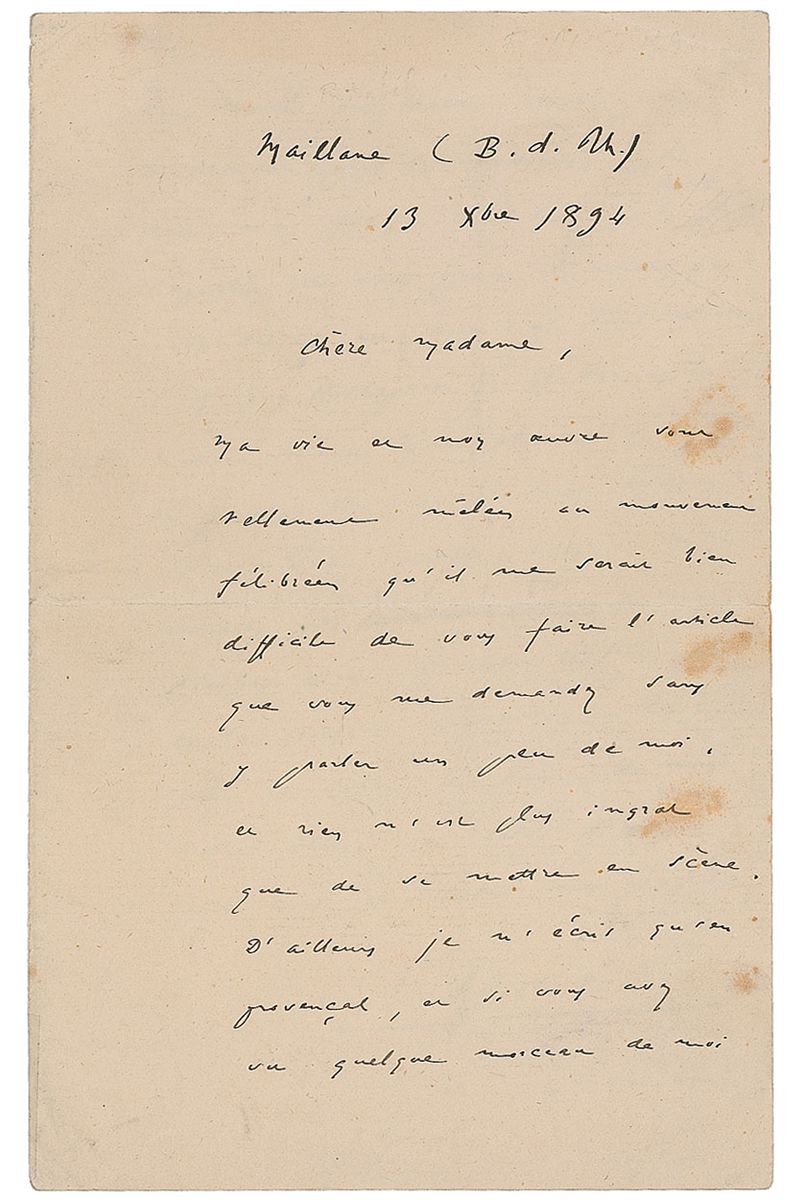 Maillane (B. d. Rh.)
13 Xbre 1894
Chère Madame,
Ma vie et mon œuvre sont
tellement mêlées au mouvement
félibréen qu'il me serait bien
difficile de vous faire l'article
que vous me demandez sans
y parler un peu de moi,
et rien n'est plus ingrat
que de se mettre en scène.
D'ailleurs je n'écris qu'en
provençal, et si vous avez
vu quelque morceau de moi